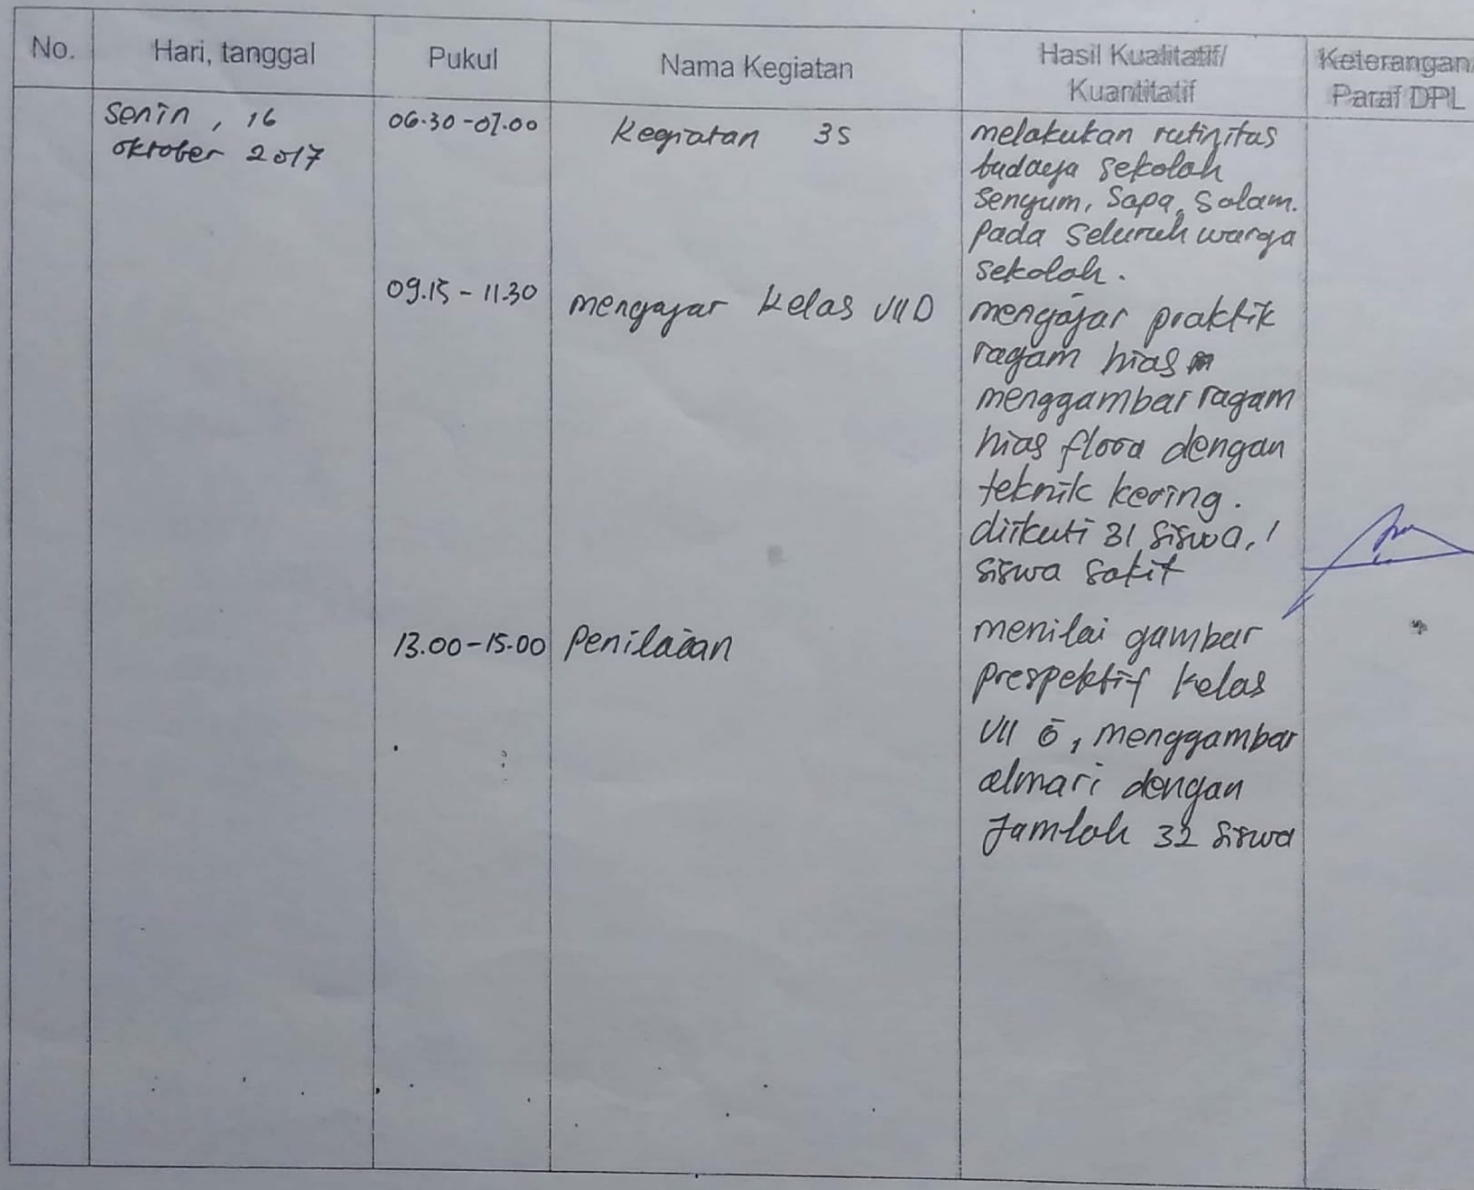 No.
Hari, tanggal
Pukul
Nama Kegiatan
Hasil Kualitatif/
Kuantitatif
Keterangan/
Paraf DPL
Senin, 16
oktober 2017
06.30-07.00
Kegiatan 3S
melakukan rutinitas
budaya sekolah
Senyum, Sapa, Salam.
Pada seluruh warga
sekolah.
09.15-11.30
mengajar kelas VII D
mengajar praktik
ragam hias
menggambar ragam
hias flora dengan
teknik kering.
diikuti 31 siswa, 1
siswa sakit
13.00-15.00
Penilaian
menilai gambar
prespektif kelas
VII, menggambar
almari dengan
Jumlah 32 siswa